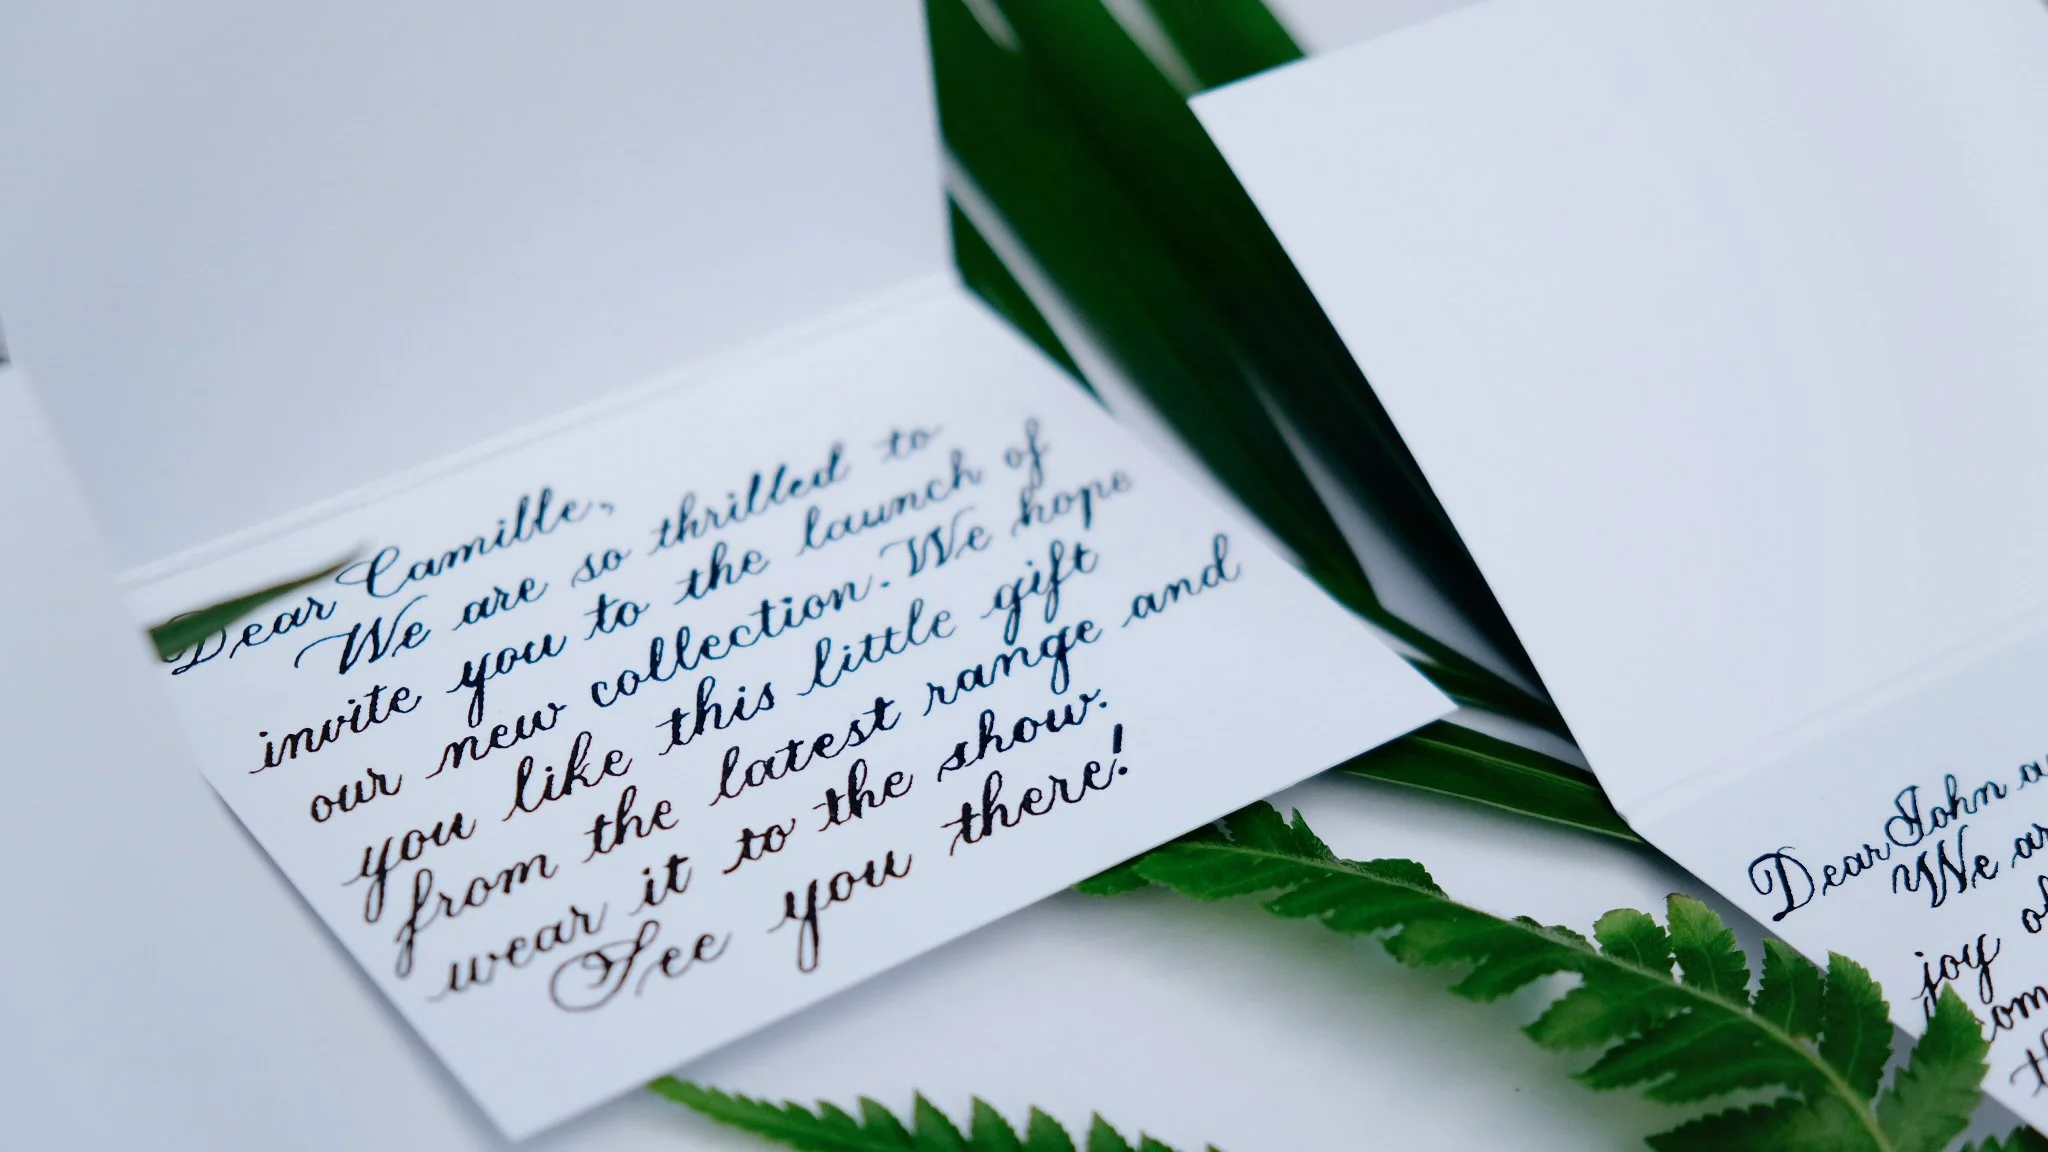 Dear Camille,
We are so thrilled to
invite you to the launch of
our new collection. We hope
you like this little gift
from the latest range and
wear it to the show.
See you there!
Dear John
We
joy